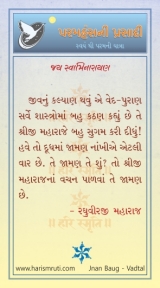 પરમહંસની પ્રસાદી
સ્વયં થી પરમની યાત્રા
જય સ્વામિનારાયણ
જીવનું કલ્યાણ થવું એ વેદ-પુરાણ
સર્વે શાસ્ત્રોમાં બહુ કઠણ કહ્યું છે તે
શ્રીજી મહારાજે બહુ સુગમ કરી દીધું!
હવે તો દૂધમાં જામણ નાંખીએ એટલી
વાર છે. તે જામણ તે શું? તો શ્રીજી
મહારાજનાં વચન પાળવાં તે જામણ
છે.
- રઘુવીરજી મહારાજ
www.harismruti.com Jnan Baug - Vadtal